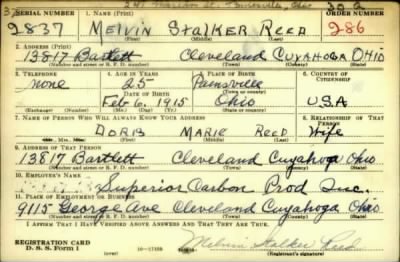 SERIAL NUMBER 1. NAME (Print) ORDER NUMBER
2837 MELVIN STALKER REED 286
(First) (Middle) (Last)
2. ADDRESS (Print)
13817 Bartlett Cleveland CUYAHOGA OHIO
(Number and street or R. F. D. number) (Town) (County) (State)
3. TELEPHONE 4. AGE IN YEARS 5. PLACE OF BIRTH 6. COUNTRY OF CITIZENSHIP
none 25 Painsville
DATE OF BIRTH
Feb 6, 1915 Ohio U.S.A
(Exchange) (Number) (Mo.) (Day) (Yr.) (State or country)
7. NAME OF PERSON WHO WILL ALWAYS KNOW YOUR ADDRESS 8. RELATIONSHIP OF THAT PERSON
DORIS MARIE REED Wife
(Mr., Mrs., Miss) (First) (Middle) (Last)
9. ADDRESS OF THAT PERSON
13817 Bartlett Cleveland Cuyahoga Ohio
(Number and street or R. F. D. number) (Town) (County) (State)
10. EMPLOYER'S NAME
Superior Carbon Prod Inc.
11. PLACE OF EMPLOYMENT OR BUSINESS
9115 George Ave Cleveland Cuyahoga Ohio
(Number and street or R. F. D. number) (Town) (County) (State)
I AFFIRM THAT I HAVE VERIFIED ABOVE ANSWERS AND THAT THEY ARE TRUE.
REGISTRATION CARD
D. S. S. Form 1
Melvin Stalker Reed
(Registrant's signature)